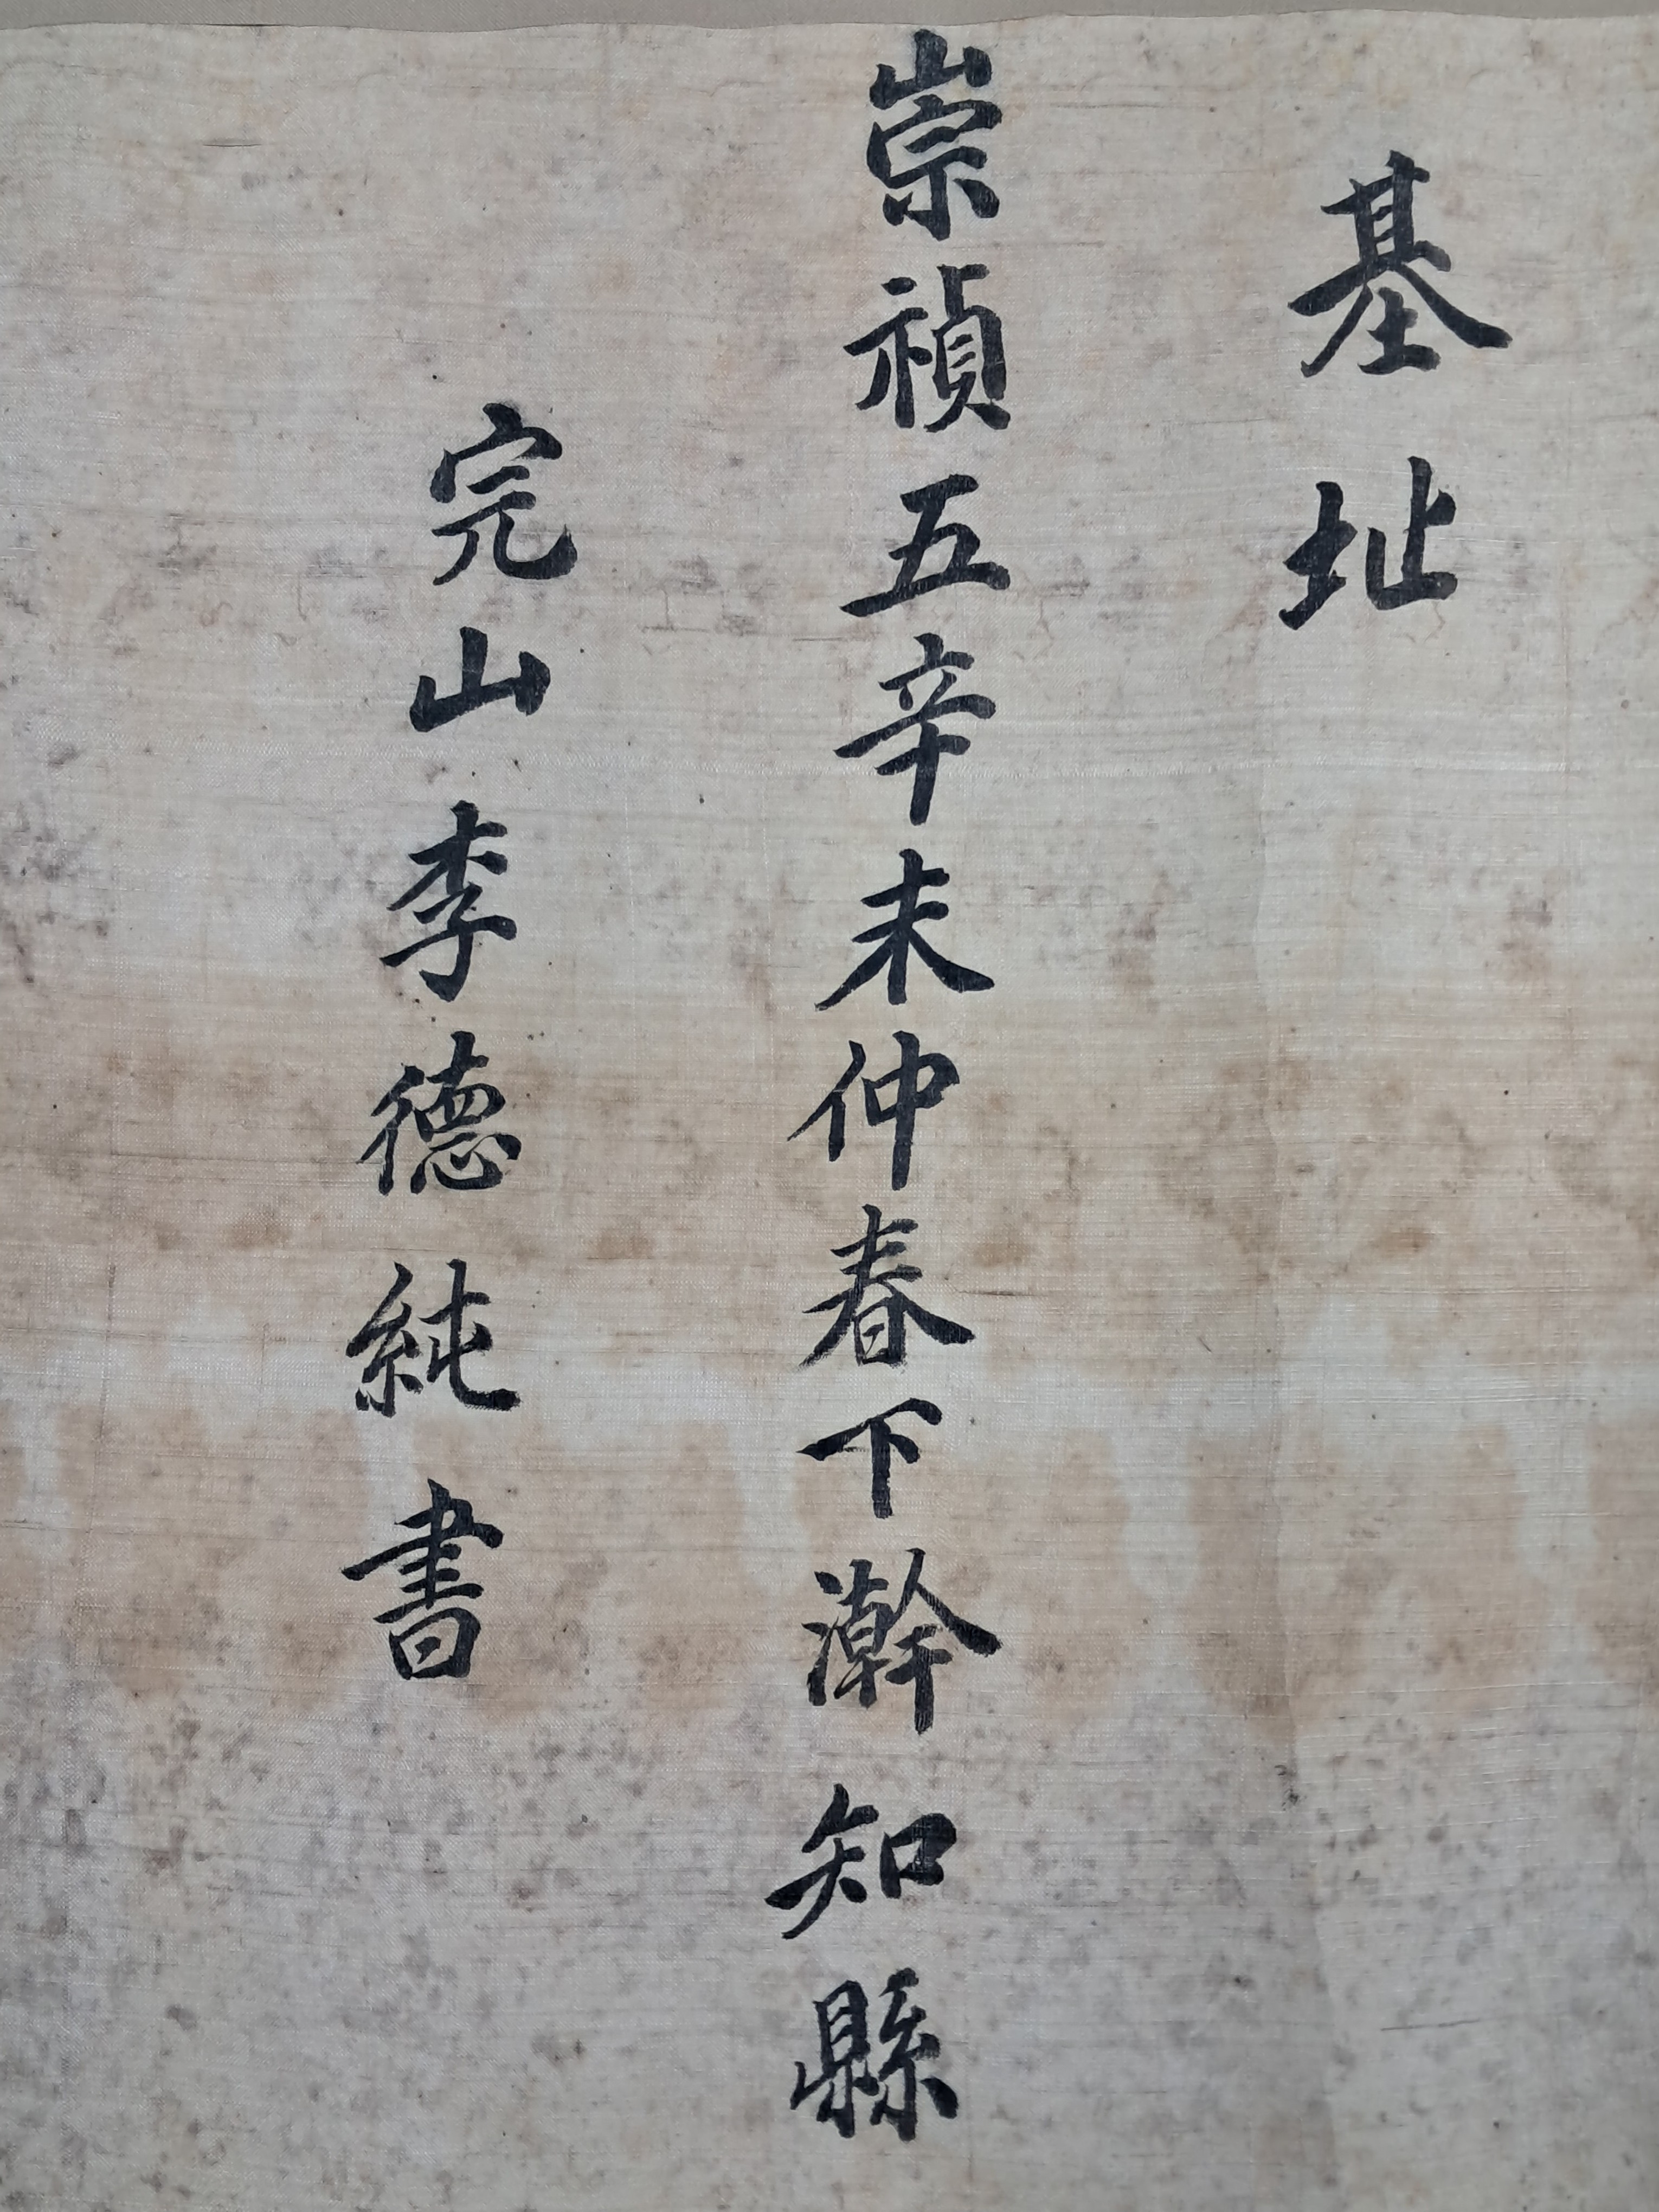 基址
崇禎五辛未仲春下澣知縣
完山李德純書